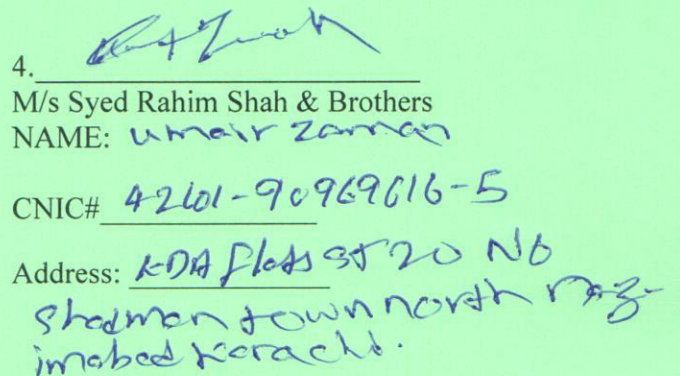 4.
M/s Syed Rahim Shah & Brothers
NAME: Umair Zaman
CNIC# 42101-90969616-5
Address: KDA flats ST 20 NO
Shadman town north naz-
imabad Karachi.